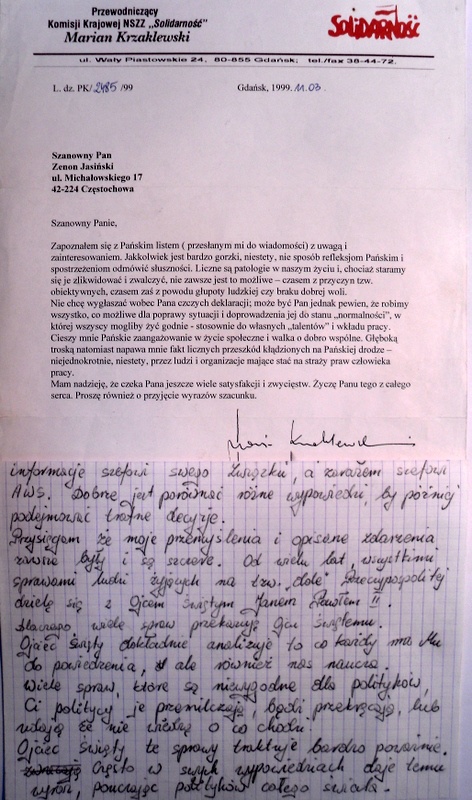 Przewodniczący
Komisji Krajowej NSZZ „Solidarność”
Marian Krzaklewski
SOLIDARNOŚĆ
ul. Wały Piastowskie 24, 80-855 Gdańsk; tel./fax 38-44-72.
L. dz. PK/2485/99
Gdańsk, 1999.11.03.
Szanowny Pan
Zenon Jasiński
ul. Michałowskiego 17
42-224 Częstochowa
Szanowny Panie,
Zapoznałem się z Pańskim listem ( przesłanym mi do wiadomości) z uwagą i
zainteresowaniem. Jakkolwiek jest bardzo gorzki, niestety, nie sposób refleksjom Pańskim i
spostrzeżeniom odmówić słuszności. Liczne są patologie w naszym życiu i, chociaż staramy
się je zlikwidować i zwalczyć, nie zawsze jest to możliwe – czasem z przyczyn tzw.
obiektywnych, czasem zaś z powodu głupoty ludzkiej czy braku dobrej woli.
Nie chcę wygłaszać wobec Pana czczych deklaracji; może być Pan jednak pewien, że robimy
wszystko, co możliwe dla poprawy sytuacji i doprowadzenia jej do stanu „normalności”, w
której wszyscy mogliby żyć godnie - stosownie do własnych „talentów” i wkładu pracy.
Cieszy mnie Pańskie zaangażowanie w życie społeczne i walka o dobro wspólne. Głęboką
troską natomiast napawa mnie fakt licznych przeszkód kłądzionych na Pańskiej drodze –
niejednokrotnie, niestety, przez ludzi i organizacje mające stać na straży praw człowieka
pracy.
Mam nadzieję, że czeka Pana jeszcze wiele satysfakcji i zwycięstw. Życzę Panu tego z całego
serca. Proszę również o przyjęcie wyrazów szacunku.
informacje szefowi swego Związku, a zarazem szefowi
AWS. Dobrze jest porównać różne wypowiedzi, by później
podejmować trafne decyzje.
Przysięgam że moje przemyślenia i opisane zdarzenia
zawsze były i są szczere. Od wielu lat, wszystkimi
sprawami ludzi żyjących na tzw. „dole” Rzeczypospolitej
dzielę się z Ojcem Świętym Janem Pawłem II.
Dlaczego wiele spraw przekazuję Ojcu Świętemu.
Ojciec Święty dokładnie analizuje to co każdy ma Mu
do powiedzenia, ale również nas naucza.
Wiele spraw, które są niewygodne dla polityków,
Ci politycy je przemilczają, bądź przekręcają, lub
udają że nie wiedzą o co chodzi.
Ojciec Święty te sprawy traktuje bardzo poważnie.
Często w swych wypowiedziach daje temu
wyraz, pouczając polityków całego świata.